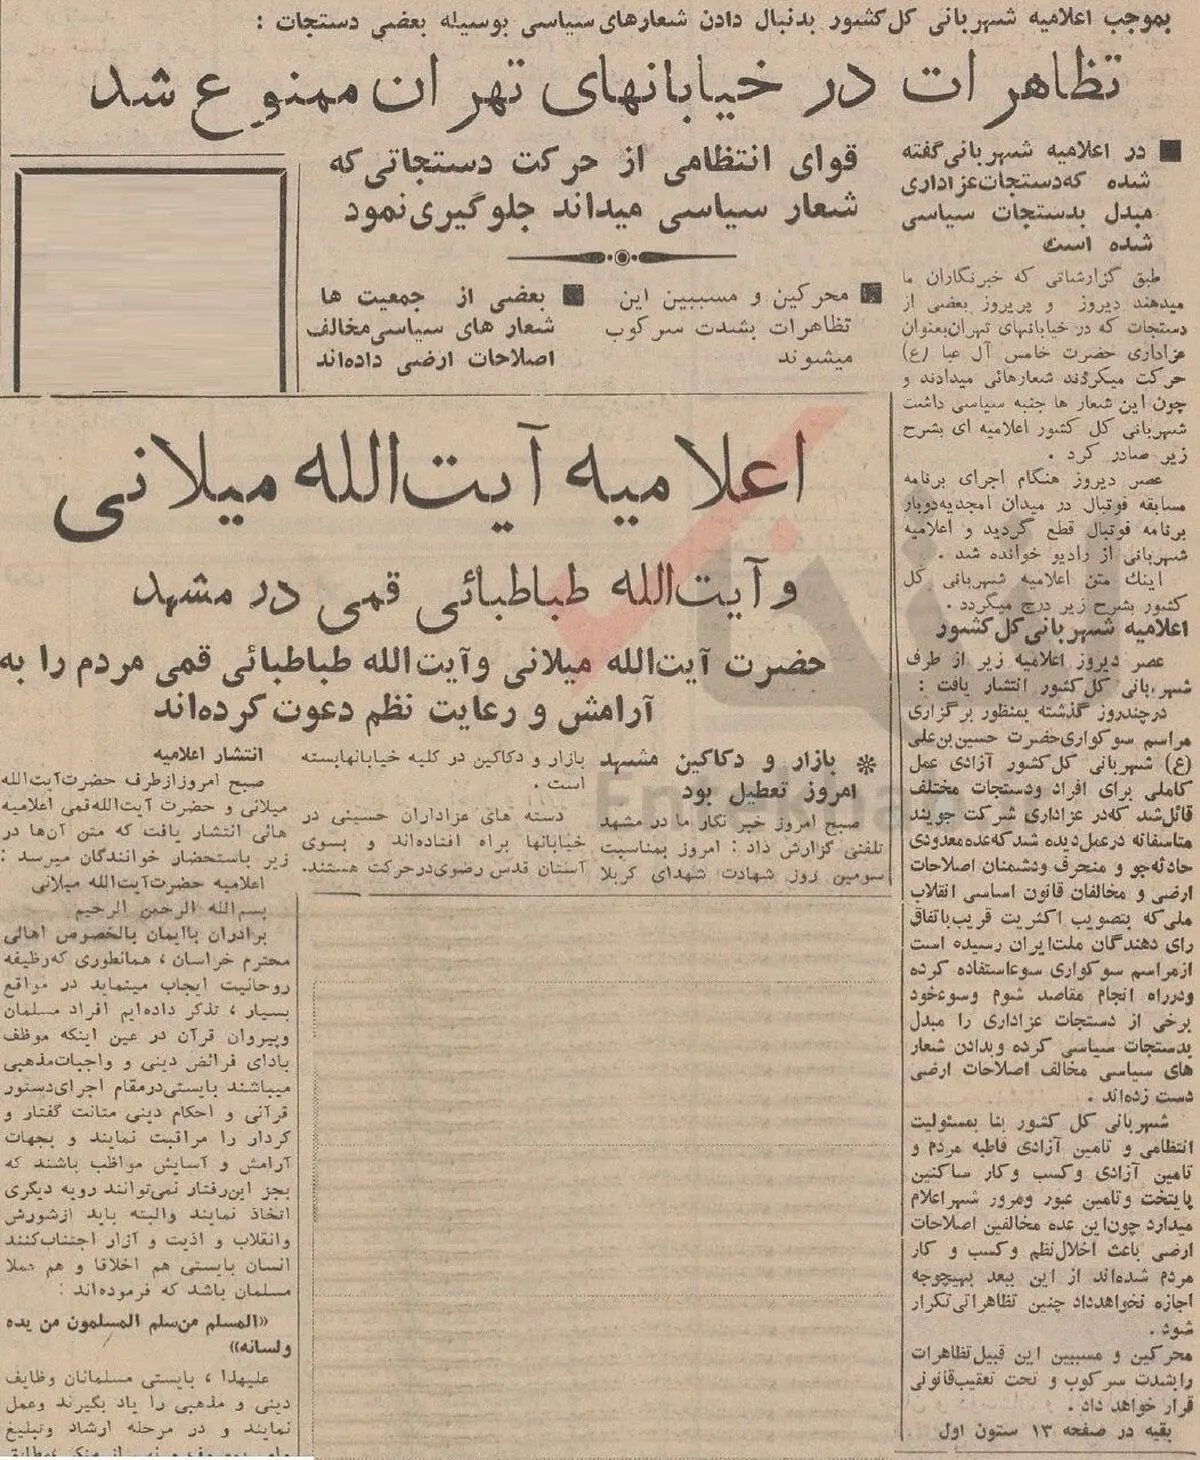 بموجب اعلامیه شهربانی کل کشور بدنبال دادن شعارهای سیاسی بوسیله بعضی دستجات :
تظاهرات در خیابانهای تهران ممنوع شد
قوای انتظامی از حرکت دستجاتی که
شعار سیاسی میداند جلوگیری نمود
■ محرکین و مسببین این
تظاهرات بشدت سرکوب
میشوند
■ بعضی از جمعیت ها
شعار های سیاسی مخالف
اصلاحات ارضی داده‌اند
■ در اعلامیه شهربانی گفته
شده که دستجات عزاداری
مبدل بدستجات سیاسی
شده است
طبق گزارشاتی که خبرنگاران ما
میدهند دیروز و پریروز بعضی از
دستجات که در خیابانهای تهران بعنوان
عزاداری حضرت خامس آل عبا (ع)
حرکت میکردند شعارهائی میدادند و
چون این شعار ها جنبه سیاسی داشت
شهربانی کل کشور اعلامیه ای بشرح
زیر صادر کرد .
عصر دیروز هنگام اجرای برنامه
مسابقه فوتبال در میدان امجدیه دوبار
برنامه فوتبال قطع گردید و اعلامیه
شهربانی از رادیو خوانده شد .
اینك متن اعلامیه شهربانی کل
کشور بشرح زیر درج میگردد .
اعلامیه شهربانی کل کشور
عصر دیروز اعلامیه زیر از طرف
شهربانی کل کشور انتشار یافت :
درچندروز گذشته بمنظور برگزاری
مراسم سوگواری حضرت حسین بن علی
(ع) شهربانی کل کشور آزادی عمل
کاملی برای افراد ودستجات مختلف
قائل شد که در عزاداری شرکت جویند
متاسفانه درعمل دیده شد که عده معدودی
حادثه جو و منحرف ودشمنان اصلاحات
ارضی و مخالفان قانون اساسی انقلاب
ملی که بتصویب اکثریت قریب باتفاق
رای دهندگان ملت ایران رسیده است
ازمراسم سوگواری سوءاستفاده کرده
ودرراه انجام مقاصد شوم وسوءخود
برخی از دستجات عزاداری را مبدل
بدستجات سیاسی کرده وبدادن شعار
های سیاسی مخالف اصلاحات ارضی
دست زده‌اند .
شهربانی کل کشور بنا بمسئولیت
انتظامی و تامین آزادی قاطبه مردم و
تامین آزادی وکسب وکار ساکنین
پایتخت وتامین عبور ومرور شهر اعلام
میدارد چون این عده مخالفین اصلاحات
ارضی باعث اخلال نظم وکسب و کار
مردم شده‌اند از این ببعد بهیچوجه
اجازه نخواهد داد چنین تظاهراتی تکرار
شود .
محرکین و مسببین این قبیل تظاهرات
رابشدت سرکوب و تحت تعقیب قانونی
قرار خواهد داد .
بقیه در صفحه ۱۳ ستون اول
اعلامیه آیت‌الله میلانی
و آیت‌الله طباطبائی قمی در مشهد
حضرت آیت‌الله میلانی و آیت‌الله طباطبائی قمی مردم را به
آرامش و رعایت نظم دعوت کرده‌اند
* بازار و دکاکین مشهد
امروز تعطیل بود
صبح امروز خبر نگار ما در مشهد
تلفنی گزارش داد : امروز بمناسبت
سومین روز شهادت شهدای کربلا
بازار و دکاکین در کلیه خیابانها بسته
است .
دسته های عزاداران حسینی در
خیابانها براه افتاده‌اند و بسوی
آستان قدس رضوی درحرکت هستند.
انتشار اعلامیه
صبح امروز ازطرف حضرت آیت‌الله
میلانی و حضرت آیت‌الله قمی اعلامیه
هائی انتشار یافت که متن آن‌ها در
زیر باستحضار خوانندگان میرسد :
اعلامیه حضرت آیت‌الله میلانی
بسم‌الله الرحمن الرحیم
برادران باایمان بالخصوص اهالی
محترم خراسان ، همانطوری که وظیفه
روحانیت ایجاب مینماید در مواقع
بسیار ، تذکر داده‌ایم افراد مسلمان
وپیروان قرآن در عین اینکه موظف
بادای فرائض دینی و واجبات مذهبی
میباشند بایستی درمقام اجرای دستور
قرآنی و احکام دینی متانت گفتار و
کردار را مراقبت نمایند و بجهات
آرامش و آسایش مواظب باشند که
بجز این رفتار نمی‌توانند رویه دیگری
اتخاذ نمایند والبته باید ازشورش
وانقلاب و اذیت و آزار اجتناب کنند
انسان بایستی هم اخلاقا و هم عملا
مسلمان باشد که فرموده‌اند :
«المسلم من سلم المسلمون من یده
ولسانه»
علیهذا ، بایستی مسلمانان وظایف
دینی و مذهبی را یاد بگیرند وعمل
نمایند و در مرحله ارشاد وتبلیغ